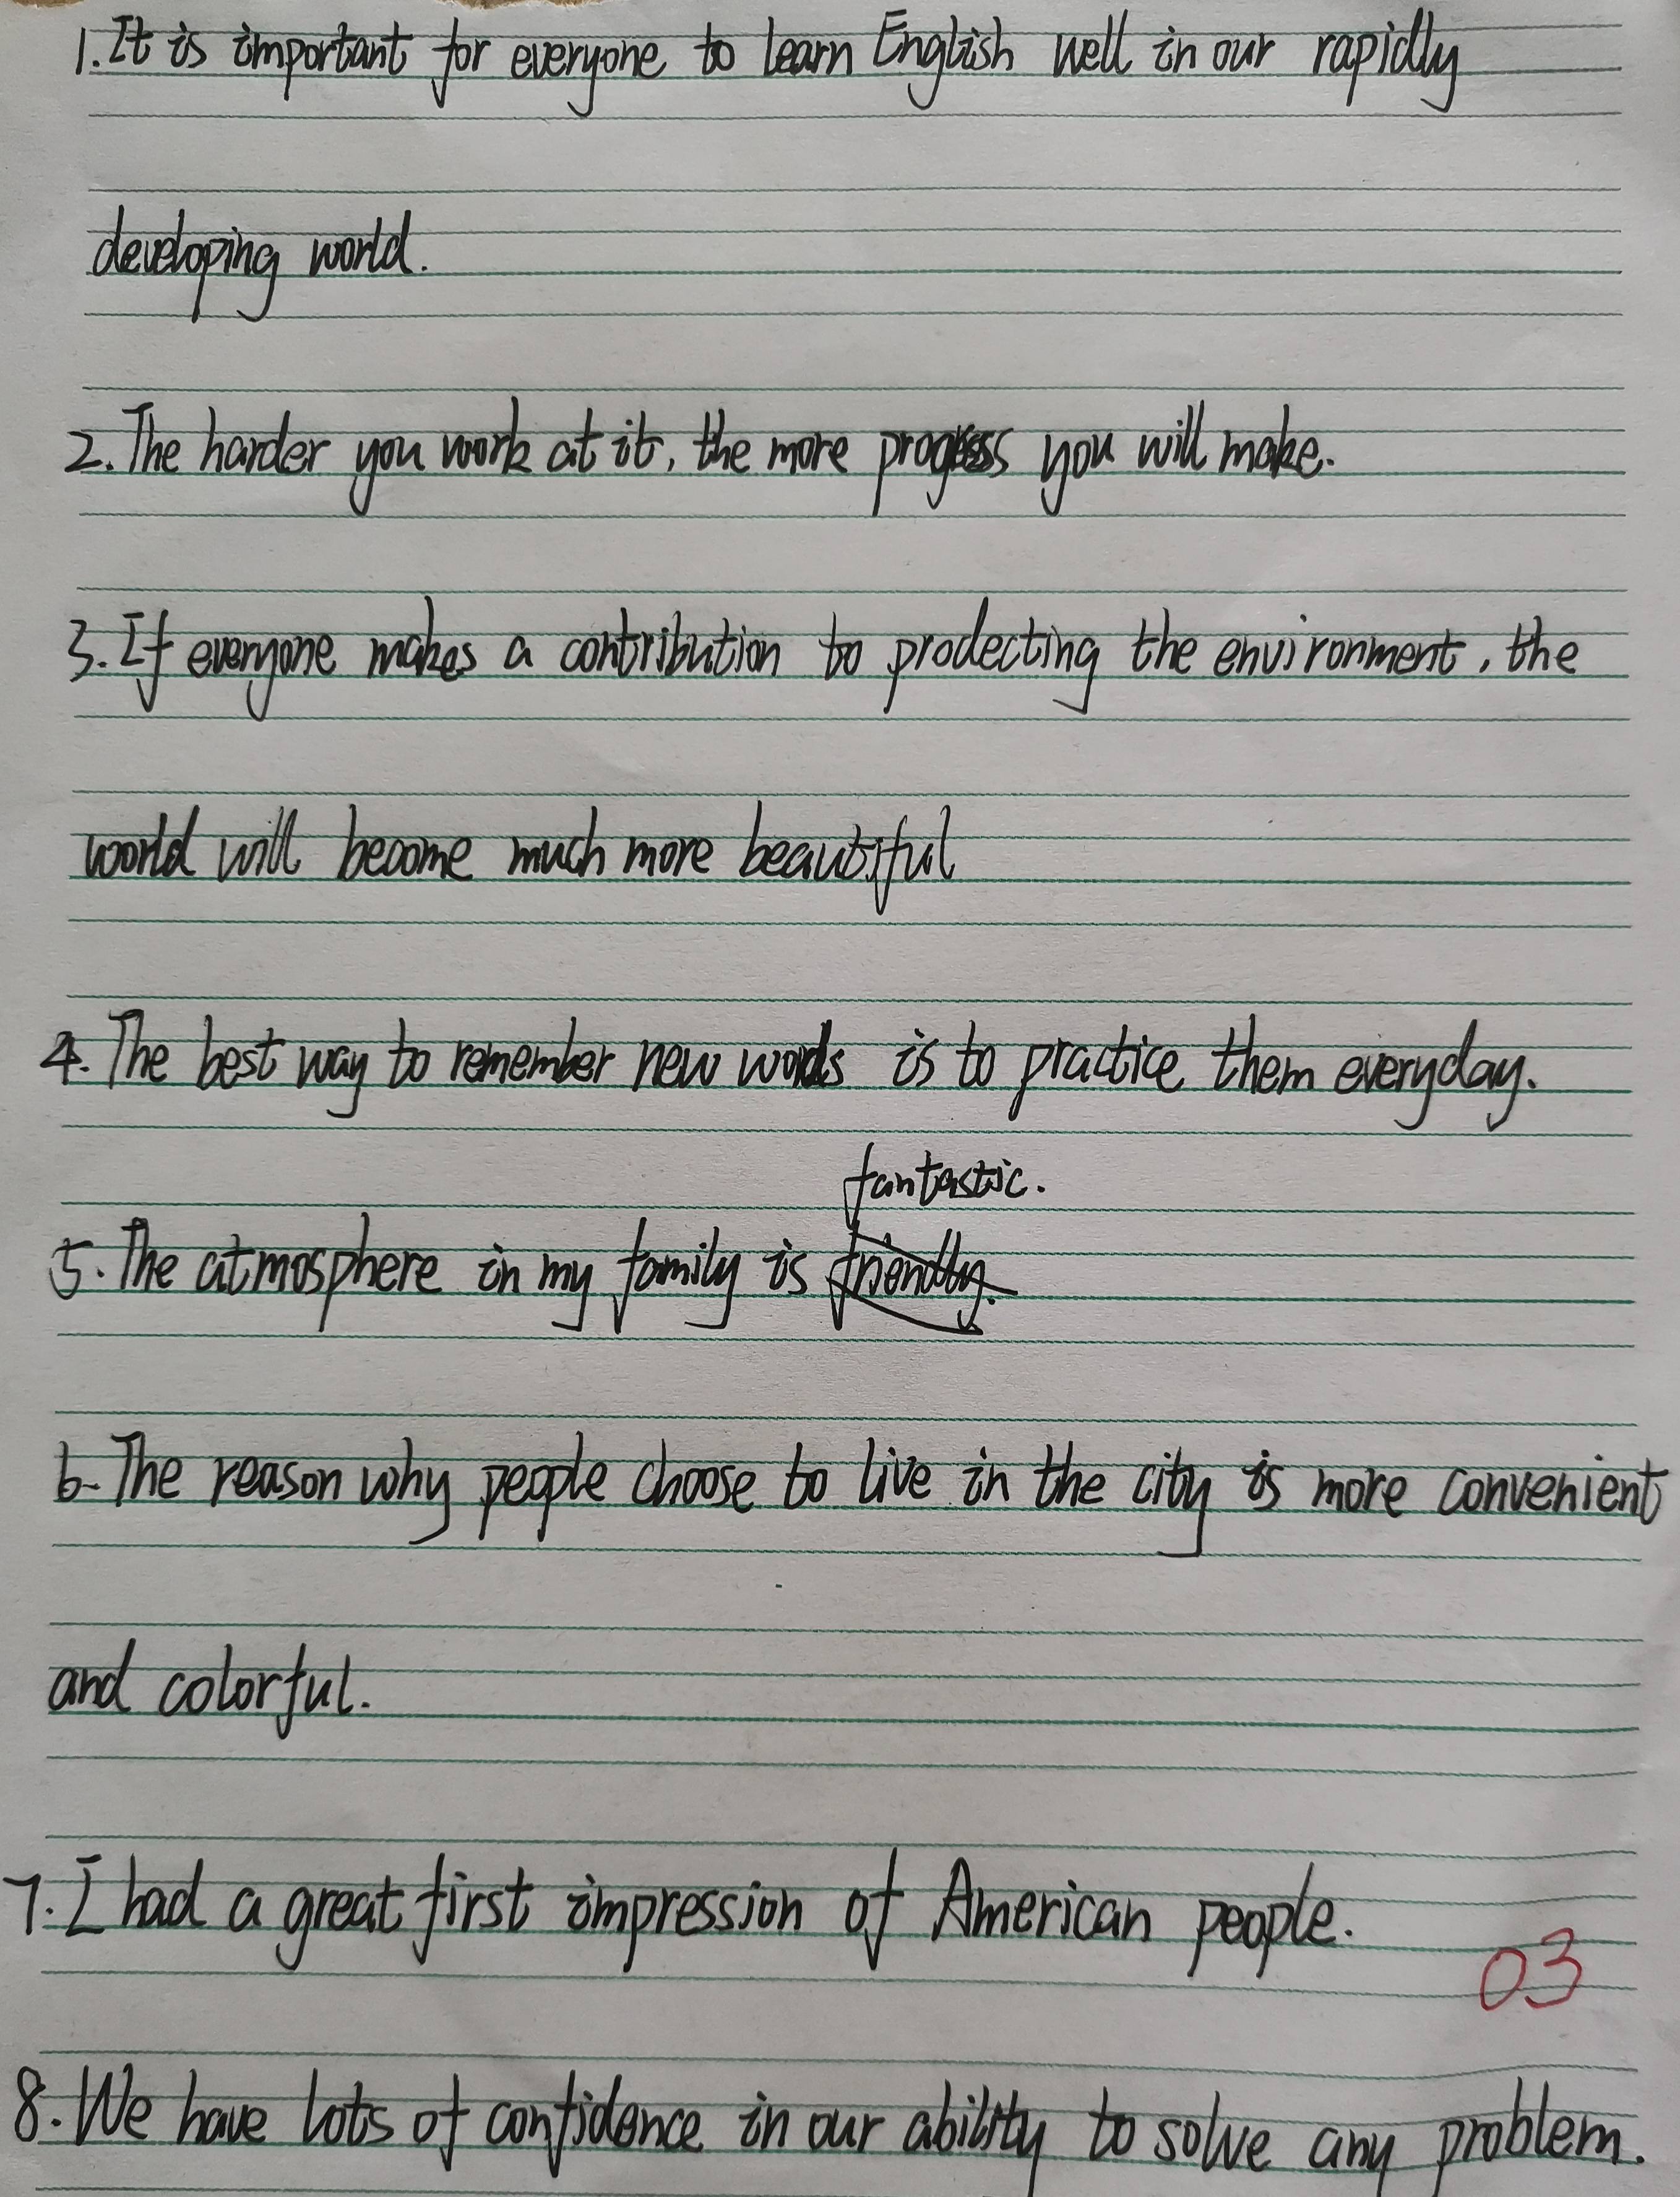 1. It is important for everyone to learn English well in our rapidly
developing world.
2. The harder you work at it, the more progress you will make.
3. If everyone makes a contribution to prodecting the environment, the
world will become much more beautiful
4. The best way to remember new words is to practice them everyday.
fantastic.
5. The atmosphere in my family is friendly.
6. The reason why people choose to live in the city is more convenient
and colorful.
7. I had a great first impression of American people.
03
8. We have lots of confidence in our ability to solve any problem.